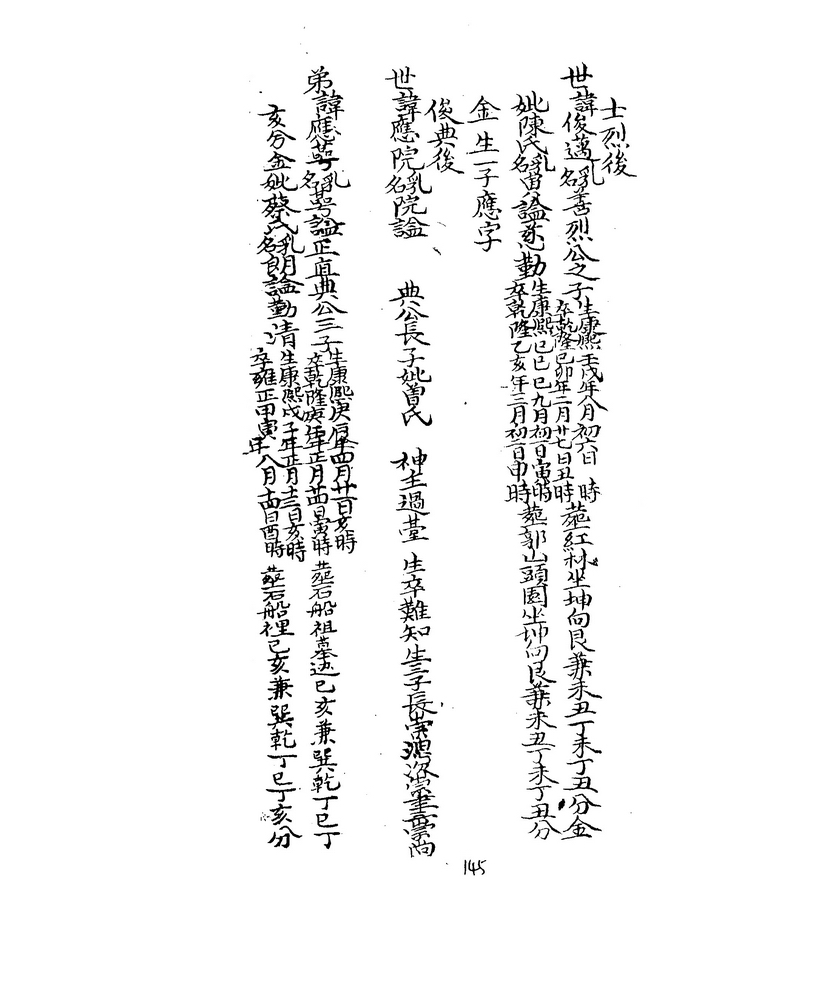 士烈後
世諱俊邁乳名善烈公之子生康熙壬戌年八月初六日 時卒乾隆己卯年二月廿七日丑時葬紅林坐坤向艮兼未丑丁未丁丑分金
妣陳氏乳名寅謚慈勤生康熙己巳九月初一日寅時卒乾隆乙亥年三月初一日申時葬郭山頭園坐坤向艮兼未丑丁未丁丑分
金 生一子應字
俊典後
世諱應院乳名院謚 典公長子妣曾氏 神主過臺 生卒難知生三子長崇 次崇 崇尚
弟諱應萼乳名萼謚正直典公三子生康熙庚辰年四月廿一日亥時卒乾隆庚午年正月廿四日寅時葬石船祖墓 巳亥兼巽乾丁巳丁
亥分金妣蔡氏乳名朗謚勤清生康熙戊子年正月十三日亥時卒雍正甲寅年八月十四日酉時葬石船裡巳亥兼巽乾丁巳丁亥分
145